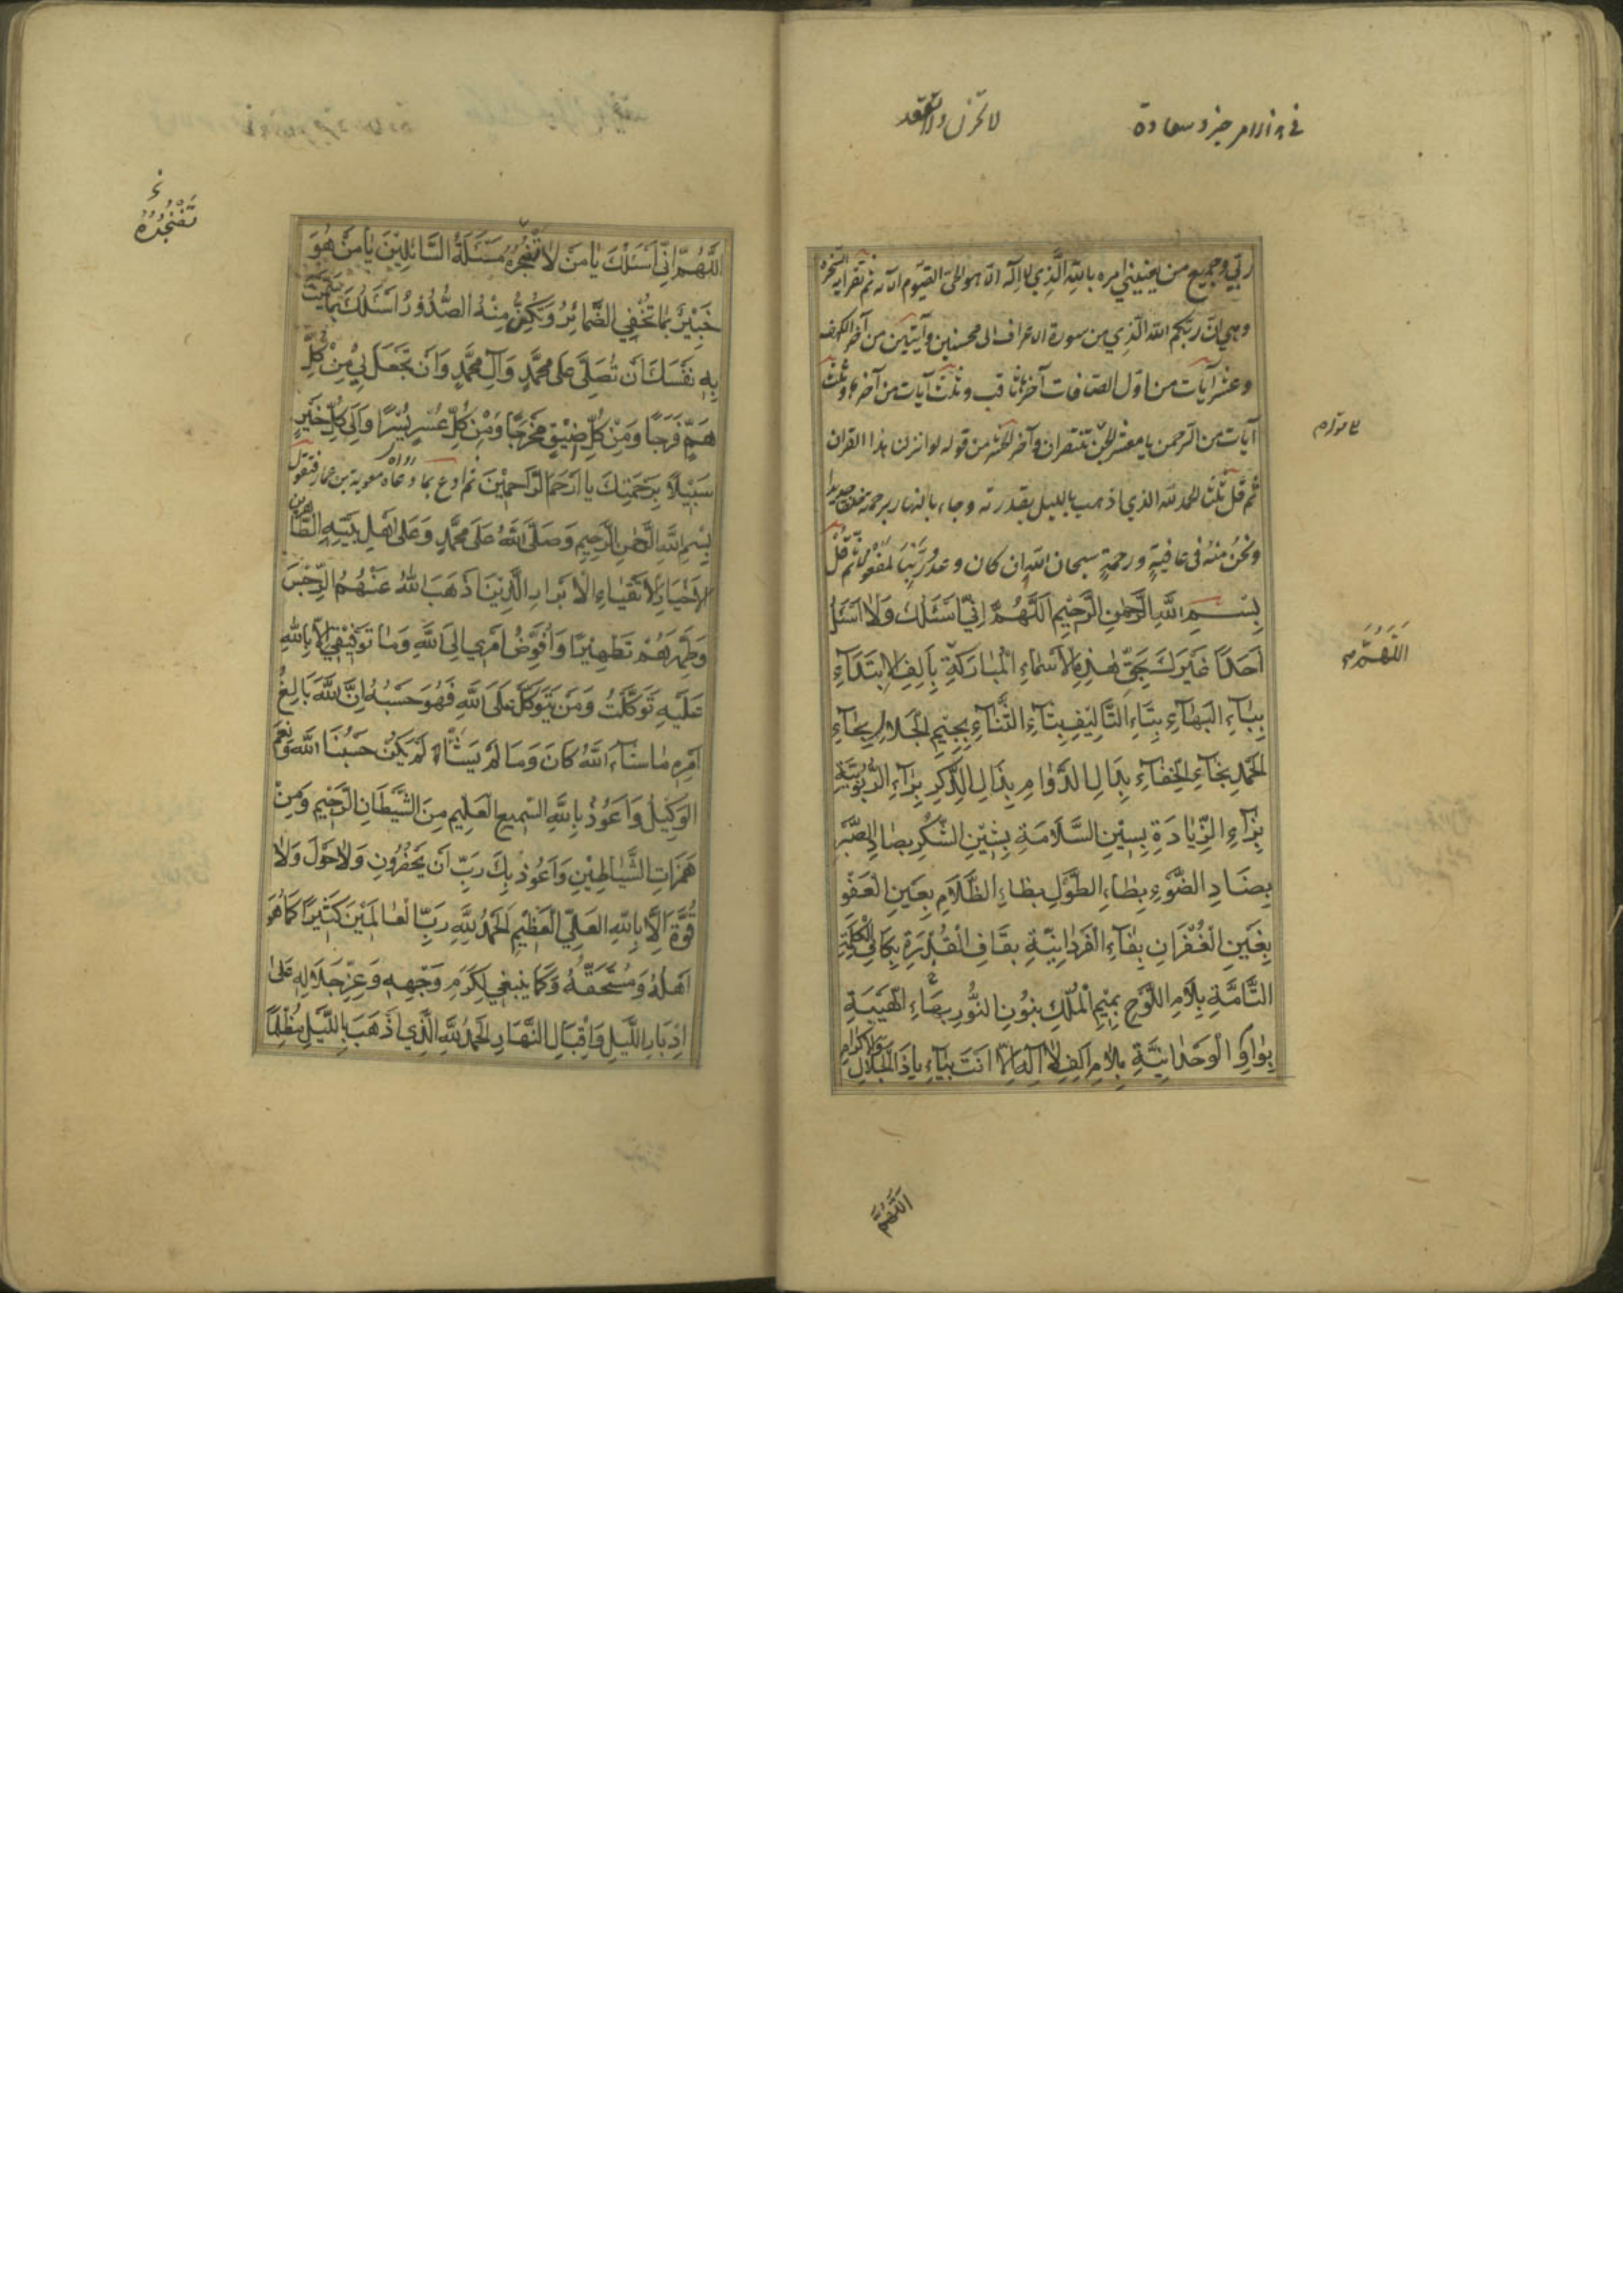 لا تحزن ولا
ربي وجميع من يعنيني امره بالله الذي لا اله الا هو الحي القيوم الآية ثم تقرأ آية السخرة
وهي ان ربكم الله الذي من سورة الاعراف الى محسنين وآيتين من آخر الكهف
وعشر آيات من اول الصافات آخرها ثاقب وثلث آيات من آخرها وثلث
آيات من الرحمن يا معشر الجن تنتصران وآخر الحشر من قوله لو انزلنا هذا القران
ثم قل ثلثا الحمد لله الذي اذهب بالليل بقدرته وجاء بالنهار برحمته خلقا جديدا
ونحن منه في عافيةٍ ورحمةٍ سبحان الله ان كان وعد ربنا لمفعولا ثم قل
بِسْمِ اللهِ الرَّحْمٰنِ الرَّحِيْمِ اَللّٰهُمَّ اِنِّي اَسْئَلُكَ وَلَا اَسْئَلُ
اَحَدًا غَيْرَكَ بِحَقِّ هٰذِهِ الْاَسْمَاءِ الْمُبَارَكَةِ بِاَلِفِ الْاِبْتِدَآءِ
بِبَاءِ الْبَهَآءِ بِتَاءِ التَّالِيْفِ بِثَآءِ الثَّنَآءِ بِجِيْمِ الْجَلَالِ بِحَآءِ
الْحَمْدِ بِخَآءِ الْخَفَآءِ بِدَالِ الدَّوَامِ بِذَالِ الذِّكْرِ بِرَآءِ الرُّبُوبِيَّةِ
بِزَآءِ الزِّيَادَةِ بِسِيْنِ السَّلَامَةِ بِشِيْنِ الشُّكْرِ بِصَادِ الصَّبْرِ
بِضَادِ الضَّوْءِ بِطَاءِ الطَّوْلِ بِظَاءِ الظَّلَامِ بِعَيْنِ الْعَفْوِ
بِغَيْنِ الْغُفْرَانِ بِفَآءِ الْفَرْدَانِيَّةِ بِقَافِ الْقُدْرَةِ بِكَافِ الْكَلِمَةِ
التَّامَّةِ بِلَامِ اللَّوْحِ بِمِيْمِ الْمُلْكِ بِنُوْنِ النُّورِ بِهَاءِ الْهَيْبَةِ
بِوَاوِ الْوَحْدَانِيَّةِ بِلَامِ اَلِفِ لَا اِلٰهَ اِلَّا اَنْتَ بِيَاءِ يَا ذَا الْجَلَالِ وَالْاِكْرَامِ
اللّٰهم
اَللّٰهُمَّ
اَللّٰهُمَّ اِنِّي اَسْئَلُكَ يَا مَنْ لَا تُضْجِرُهُ مَسْئَلَةُ السَّائِلِيْنَ يَا مَنْ هُوَ
خَبِيْرٌ بِمَا تُخْفِي الضَّمَائِرُ وَتُكِنُّ مِنْهُ الصُّدُوْرُ اَسْئَلُكَ بِمَا سَمَّيْتَ
بِهِ نَفْسَكَ اَنْ تُصَلِّيَ عَلَى مُحَمَّدٍ وَآلِ مُحَمَّدٍ وَاَنْ تَجْعَلَ لِيْ مِنْ كُلِّ
هَمٍّ فَرَجًا وَمِنْ كُلِّ ضِيْقٍ مَخْرَجًا وَمِنْ كُلِّ عُسْرٍ يُسْرًا وَاِلَى كُلِّ خَيْرٍ
سَبِيْلًا بِرَحْمَتِكَ يَا اَرْحَمَ الرَّاحِمِيْنَ ثم ادع بما رواه معوية بن عمار فتقول
بِسْمِ اللهِ الرَّحْمٰنِ الرَّحِيْمِ وَصَلَّى اللهُ عَلَى مُحَمَّدٍ وَعَلَى اَهْلِ بَيْتِهِ الطَّاهِرِيْنَ
الْاَخْيَارِ الْاَتْقِيَاءِ الْاَبْرَارِ الَّذِيْنَ اَذْهَبَ اللهُ عَنْهُمُ الرِّجْسَ
وَطَهَّرَهُمْ تَطْهِيْرًا وَاُفَوِّضُ اَمْرِي اِلَى اللهِ وَمَا تَوْفِيْقِي اِلَّا بِاللهِ
عَلَيْهِ تَوَكَّلْتُ وَمَنْ يَتَوَكَّلْ عَلَى اللهِ فَهُوَ حَسْبُهُ اِنَّ اللهَ بَالِغُ
اَمْرِهِ مَا شَآءَ اللهُ كَانَ وَمَا لَمْ يَشَاْ لَمْ يَكُنْ حَسْبُنَا اللهُ وَنِعْمَ
الْوَكِيْلُ وَاَعُوْذُ بِاللهِ السَّمِيعِ الْعَلِيْمِ مِنَ الشَّيْطَانِ الرَّجِيْمِ وَمِنْ
هَمَزَاتِ الشَّيَاطِيْنِ وَاَعُوْذُ بِكَ رَبِّ اَنْ يَحْضُرُوْنِ وَلَا حَوْلَ وَلَا
قُوَّةَ اِلَّا بِاللهِ الْعَلِيِّ الْعَظِيْمِ اَلْحَمْدُ لِلّٰهِ رَبِّ الْعَالَمِيْنَ كَثِيْرًا كَمَا هُوَ
اَهْلُهُ وَمُسْتَحَقُّهُ وَكَمَا يَنْبَغِي لِكَرَمِ وَجْهِهِ وَعِزِّ جَلَالِهِ عَلَى
اِدْبَارِ اللَّيْلِ وَاِقْبَالِ النَّهَارِ اَلْحَمْدُ لِلّٰهِ الَّذِي اَذْهَبَ بِاللَّيْلِ مُظْلِمًا